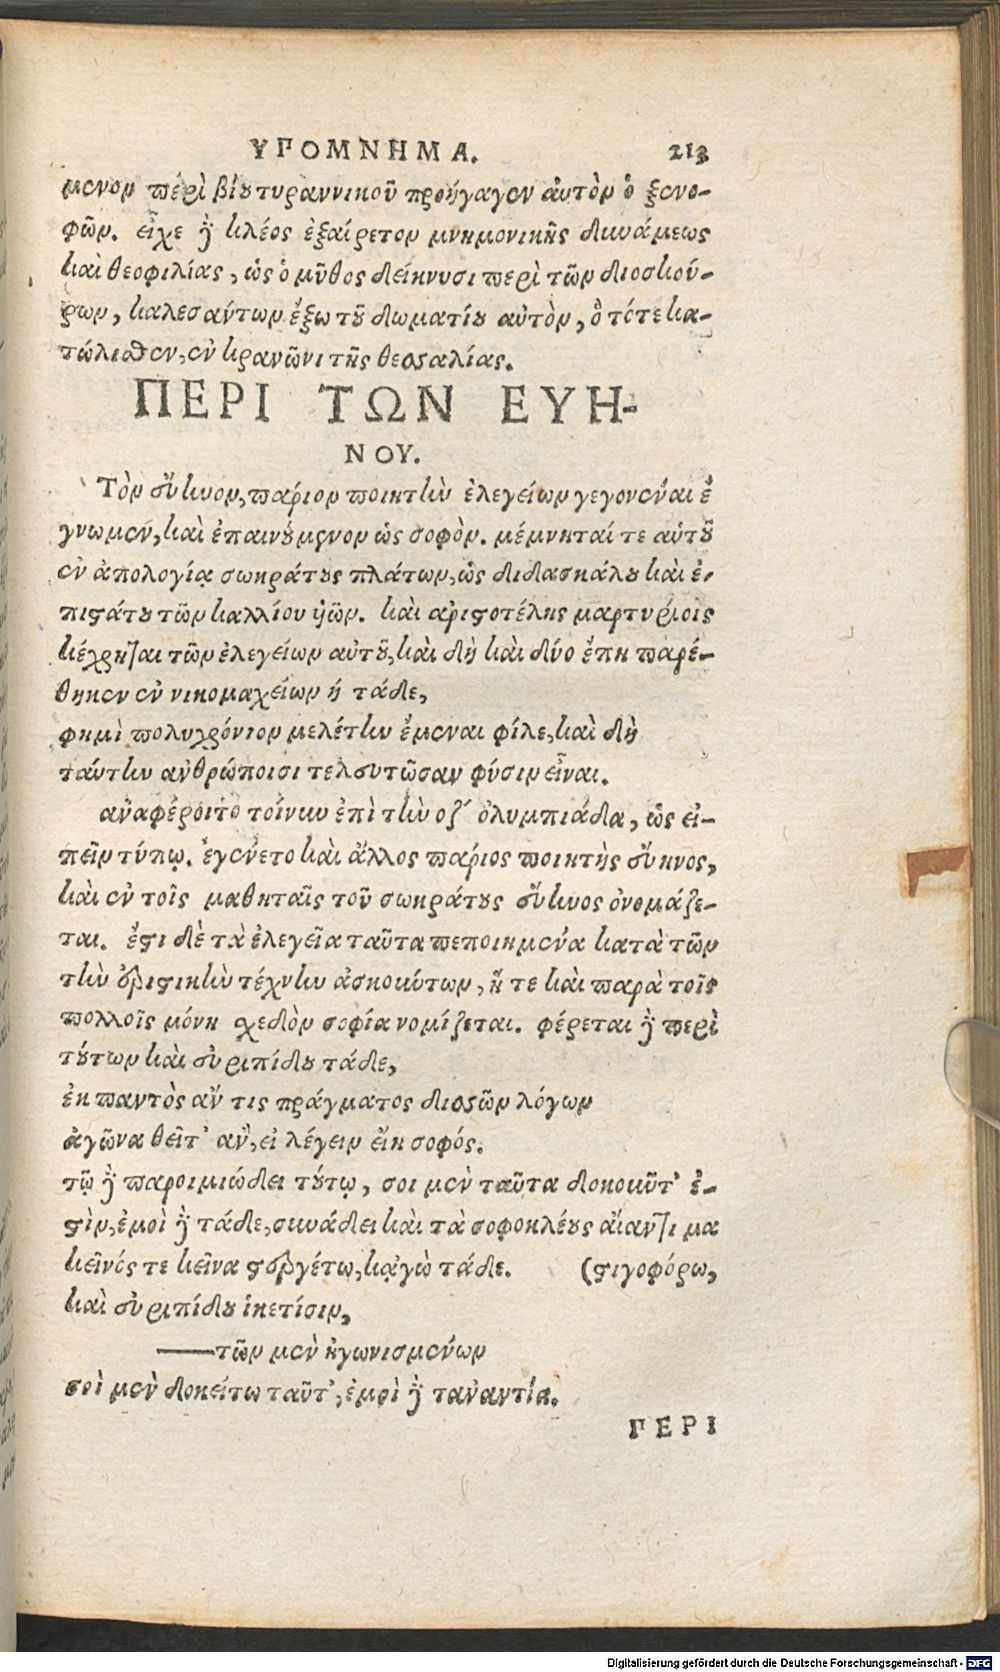 ΥΠΟΜΝΗΜΑ. 213
μενον περὶ βίου τυραννικοῦ προήγαγεν ἀυτὸν ὁ ξενο-
φῶν. εἶχε δὲ κλέος ἐξαίρετον μνημονικῆς δυνάμεως
καὶ θεοφιλίας, ὡς ὁ μῦθος δείκνυσι περὶ τῶν διοσκού-
ρων, καλεσάντων ἔξω τοῦ δωματίου αὐτὸν, ὃ τότε κα-
τώλισθεν, ἐν κρανῶνι τῆς θεσσαλίας.
ΠΕΡΙ ΤΩΝ ΕΥΗ-
ΝΟΥ.
Τὸν εὔηνον, πάριον ποιητὴν ἐλεγείων γεγονέναι ἔ
γνωμεν, καὶ ἐπαινούμενον ὡς σοφὸν. μέμνηταί τε αὐτοῦ
ἐν ἀπολογίᾳ σωκράτους πλάτων, ὡς διδασκάλου καὶ ἐ-
πιστάτου τῶν καλλίου ὑῶν. καὶ αριστοτέλης μαρτυρίοις
κέχρηται τῶν ἐλεγείων αὐτοῦ, καὶ δὴ καὶ δύο ἔπη παρέ-
θηκεν ἐν νικομαχείων ή τάδε,
φημὶ πολυχρόνιον μελέτην ἔμεναι φίλε, καὶ δὴ
ταύτην ανθρώποισι τελευτῶσαν φύσιν εἶναι.
αναφέροιτο τοίνυν ἐπὶ τὴν οζ´ ὀλυμπιάδα, ὡς εἰ-
πεῖν τύπῳ. ἐγένετο καὶ ἄλλος πάριος ποιητὴς εὔηνος,
καὶ ἐν τοῖς μαθηταῖς τοῦ σωκράτους εὔηνος ὀνομάζε-
ται. ἔστι δὲ τὰ ἐλεγεῖα ταῦτα πεποιημένα κατὰ τῶν
τὴν ἐριστικὴν τέχνην ἀσκούντων, ἥ τε καὶ παρὰ τοῖς
πολλοῖς μόνη σχεδὸν σοφία νομίζεται. φέρεται δὲ περὶ
τούτων καὶ εὐριπίδου τάδε,
ἐκ παντὸς αν τις πράγματος δισσῶν λόγων
ἀγῶνα θεῖτ' αν, εἰ λέγειν εἴη σοφός.
τῷ δὲ παροιμιώδει τούτῳ, σοι μεν ταῦτα δοκοῦντ' ἐ-
στὶν, ἐμοὶ δὲ τάδε, συνάδει καὶ τὰ σοφοκλέους αἴαντι μα
κεῖνός τε κεῖνα στεργέτω, κᾀγὼ τάδε. (στιγοφόρω,
καὶ εὐριπίδου ἱκετίσιν,
——τῶν μεν ἠγωνισμένων
σοὶ μεν δοκείτω ταῦτ', ἐμοὶ δὲ ταναντία.
ΠΕΡΙ
Digitalisierung gefördert durch die Deutsche Forschungsgemeinschaft - DFG